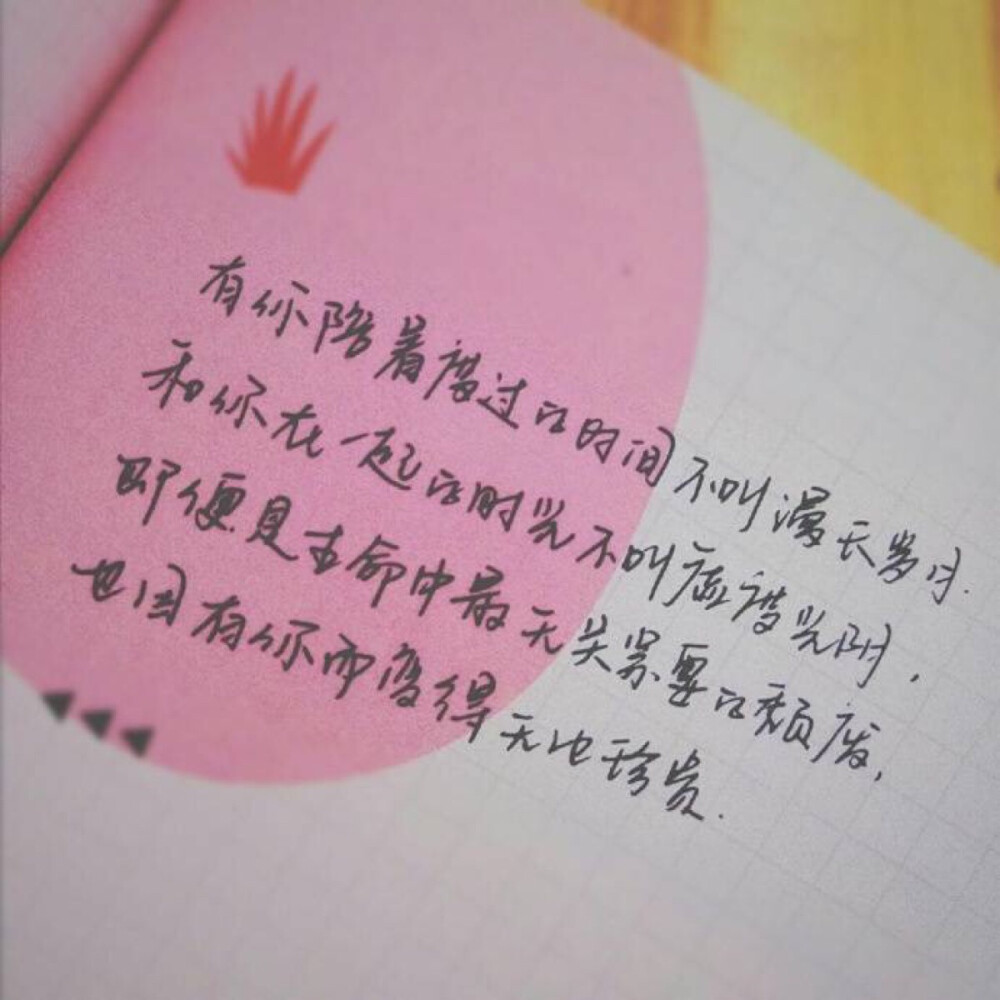 有你陪着度过的时间不叫漫长岁月.
和你在一起的时光不叫虚度光阴,
即便是生命中最无关紧要的颓废,
也因有你而变得无比珍贵.